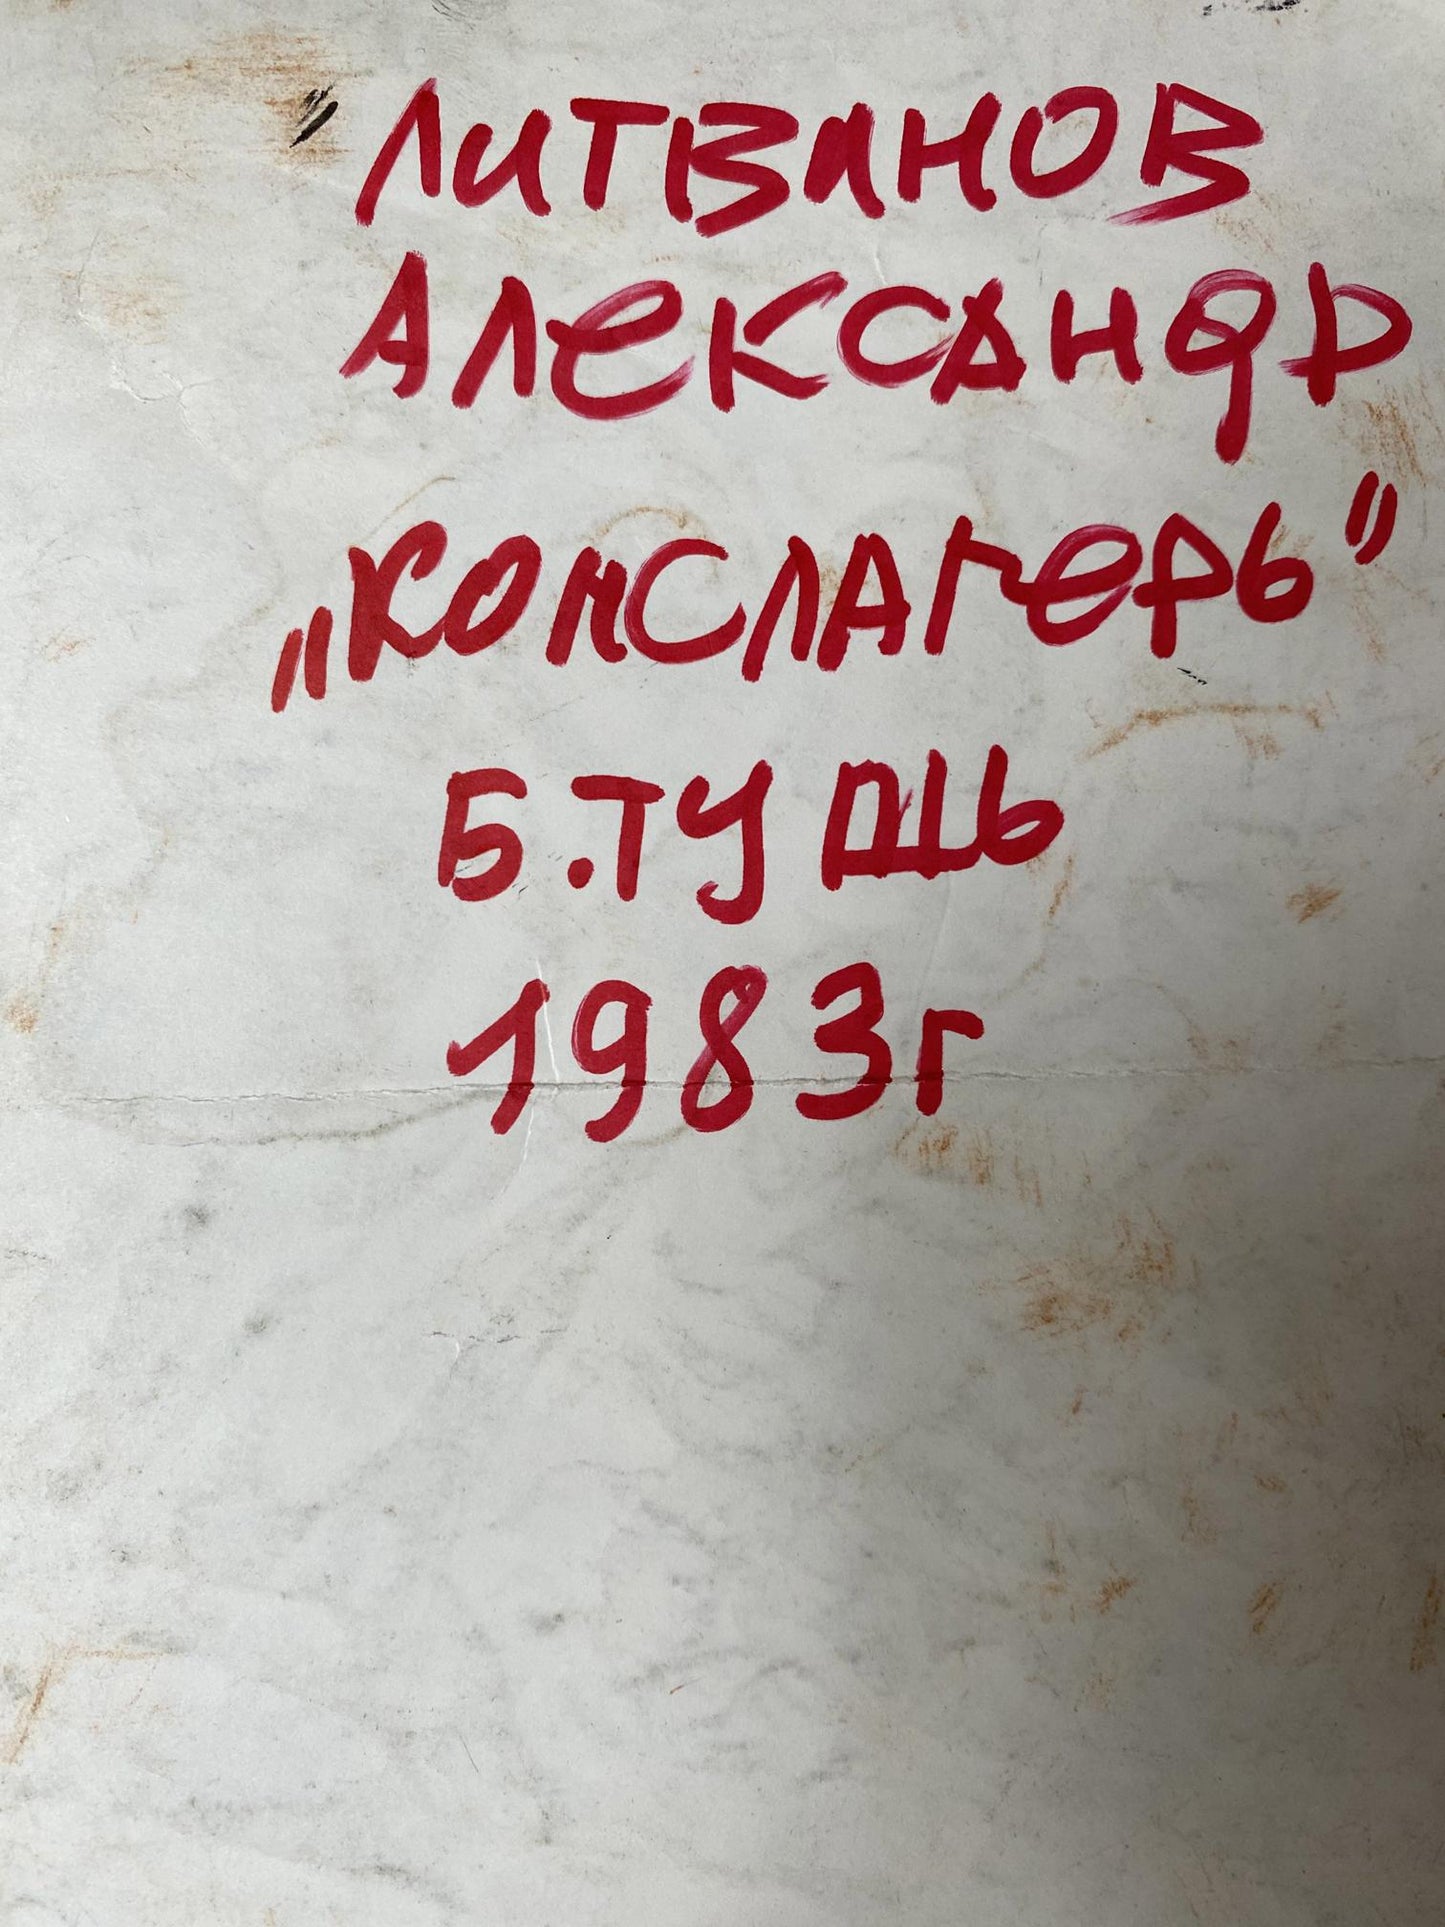 " ЛИТВИНОВ
АЛЕКСАНДР
„КОНСЛАГЕРЬ"
Б.ТУШЬ
1983г